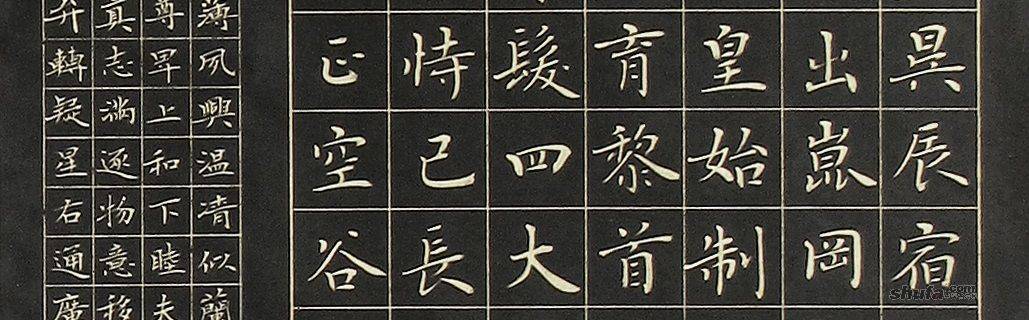 昃辰宿
出崑岡
皇始制
育黎首
髮四大
恃己長
正空谷
薄夙興温凊似蘭
尊卑上和下睦夫
真志滿逐物意移
弁轉疑星右通廣